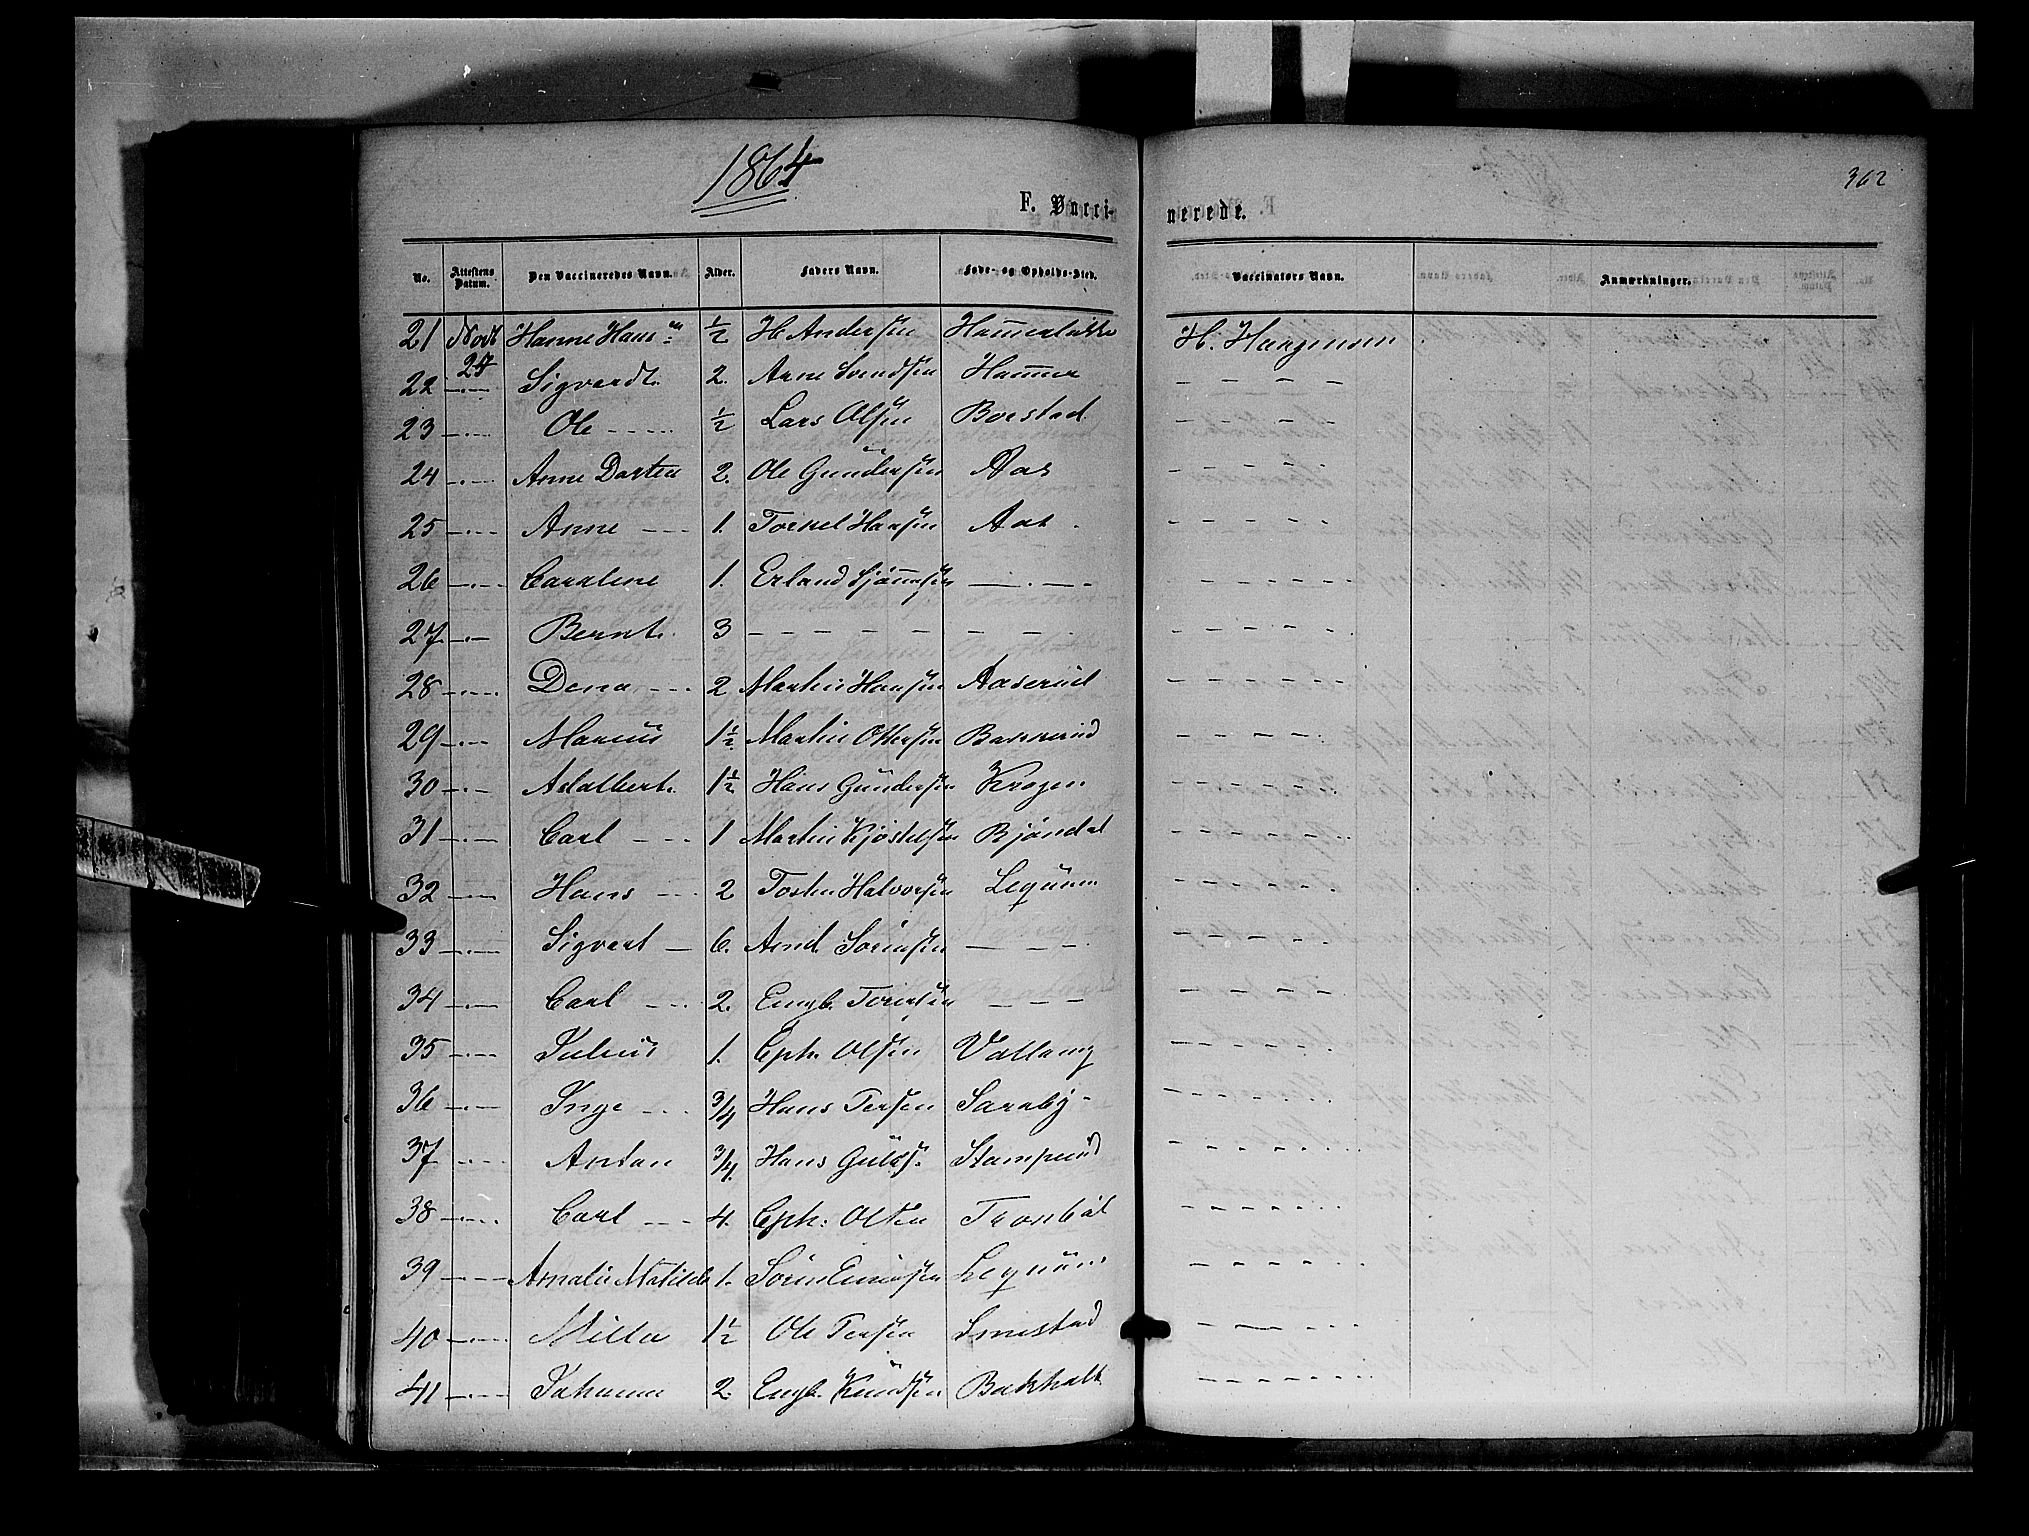 1864
362
F. Vacci- nerede.
No. Attestens Datum. Den Vaccineredes Navn. Alder. Faders Navn. Føde- og Opholds-Sted. Vaccinators Navn. Anmærkninger.
21 Novb 24 Hanne Hans 1/2 H Andersen H. Haagensen
22 —"— Sigvardt 2. Arne Svendsen Hammer – – – –
23 —"— Ole – – – 1/2 Lars Olsen Borstad – – – –
24 —"— Anne Dortea 2. Ole Gundersen Aas – – – –
25 —"— Anne – – – 1. Torkel Hansen Aas – – – –
26 —"— Caroline 1. Erland —"— – – – –
27 —"— Bernt. 3 – – – – – – – – – – –
28 —"— Dena – – – 2 Martin Hansen Aaserud – – – –
29 —"— Marius 1 1/2 Martin Ottersen Bakkerud – – – –
30 —"— Adalbert. 1 1/2 Hans Gundersen Krogen – – – –
31 —"— Carl – – – 1 Martin Kjøstelsen Bjøndal – – – –
32 —"— Hans – – – 2 Tosten Halvorsen – – – –
33 —"— Sigvart – 6. Arnd. Sørensen – – – – – – –
34 —"— Carl – – – 2. Engb. – – – – – – –
35 —"— Julius 1. Eph: Olsen – – – –
36 —"— Inge – – – 3/4 Hans Tersen Saraby – – – –
37 —"— Anton 3/4. Hans Gulds. Stamperud – – – –
38 —"— Carl – – – 4. Eph: Olsen Tronbøl – – – –
39 —"— Amalie Matilde 1. Sørin – – – –
40 —"— Milla 1 1/2 Ole Tersen Smestad – – – –
41 —"— Johanna 2. Engb. Knudsen Bakhalt – – – –